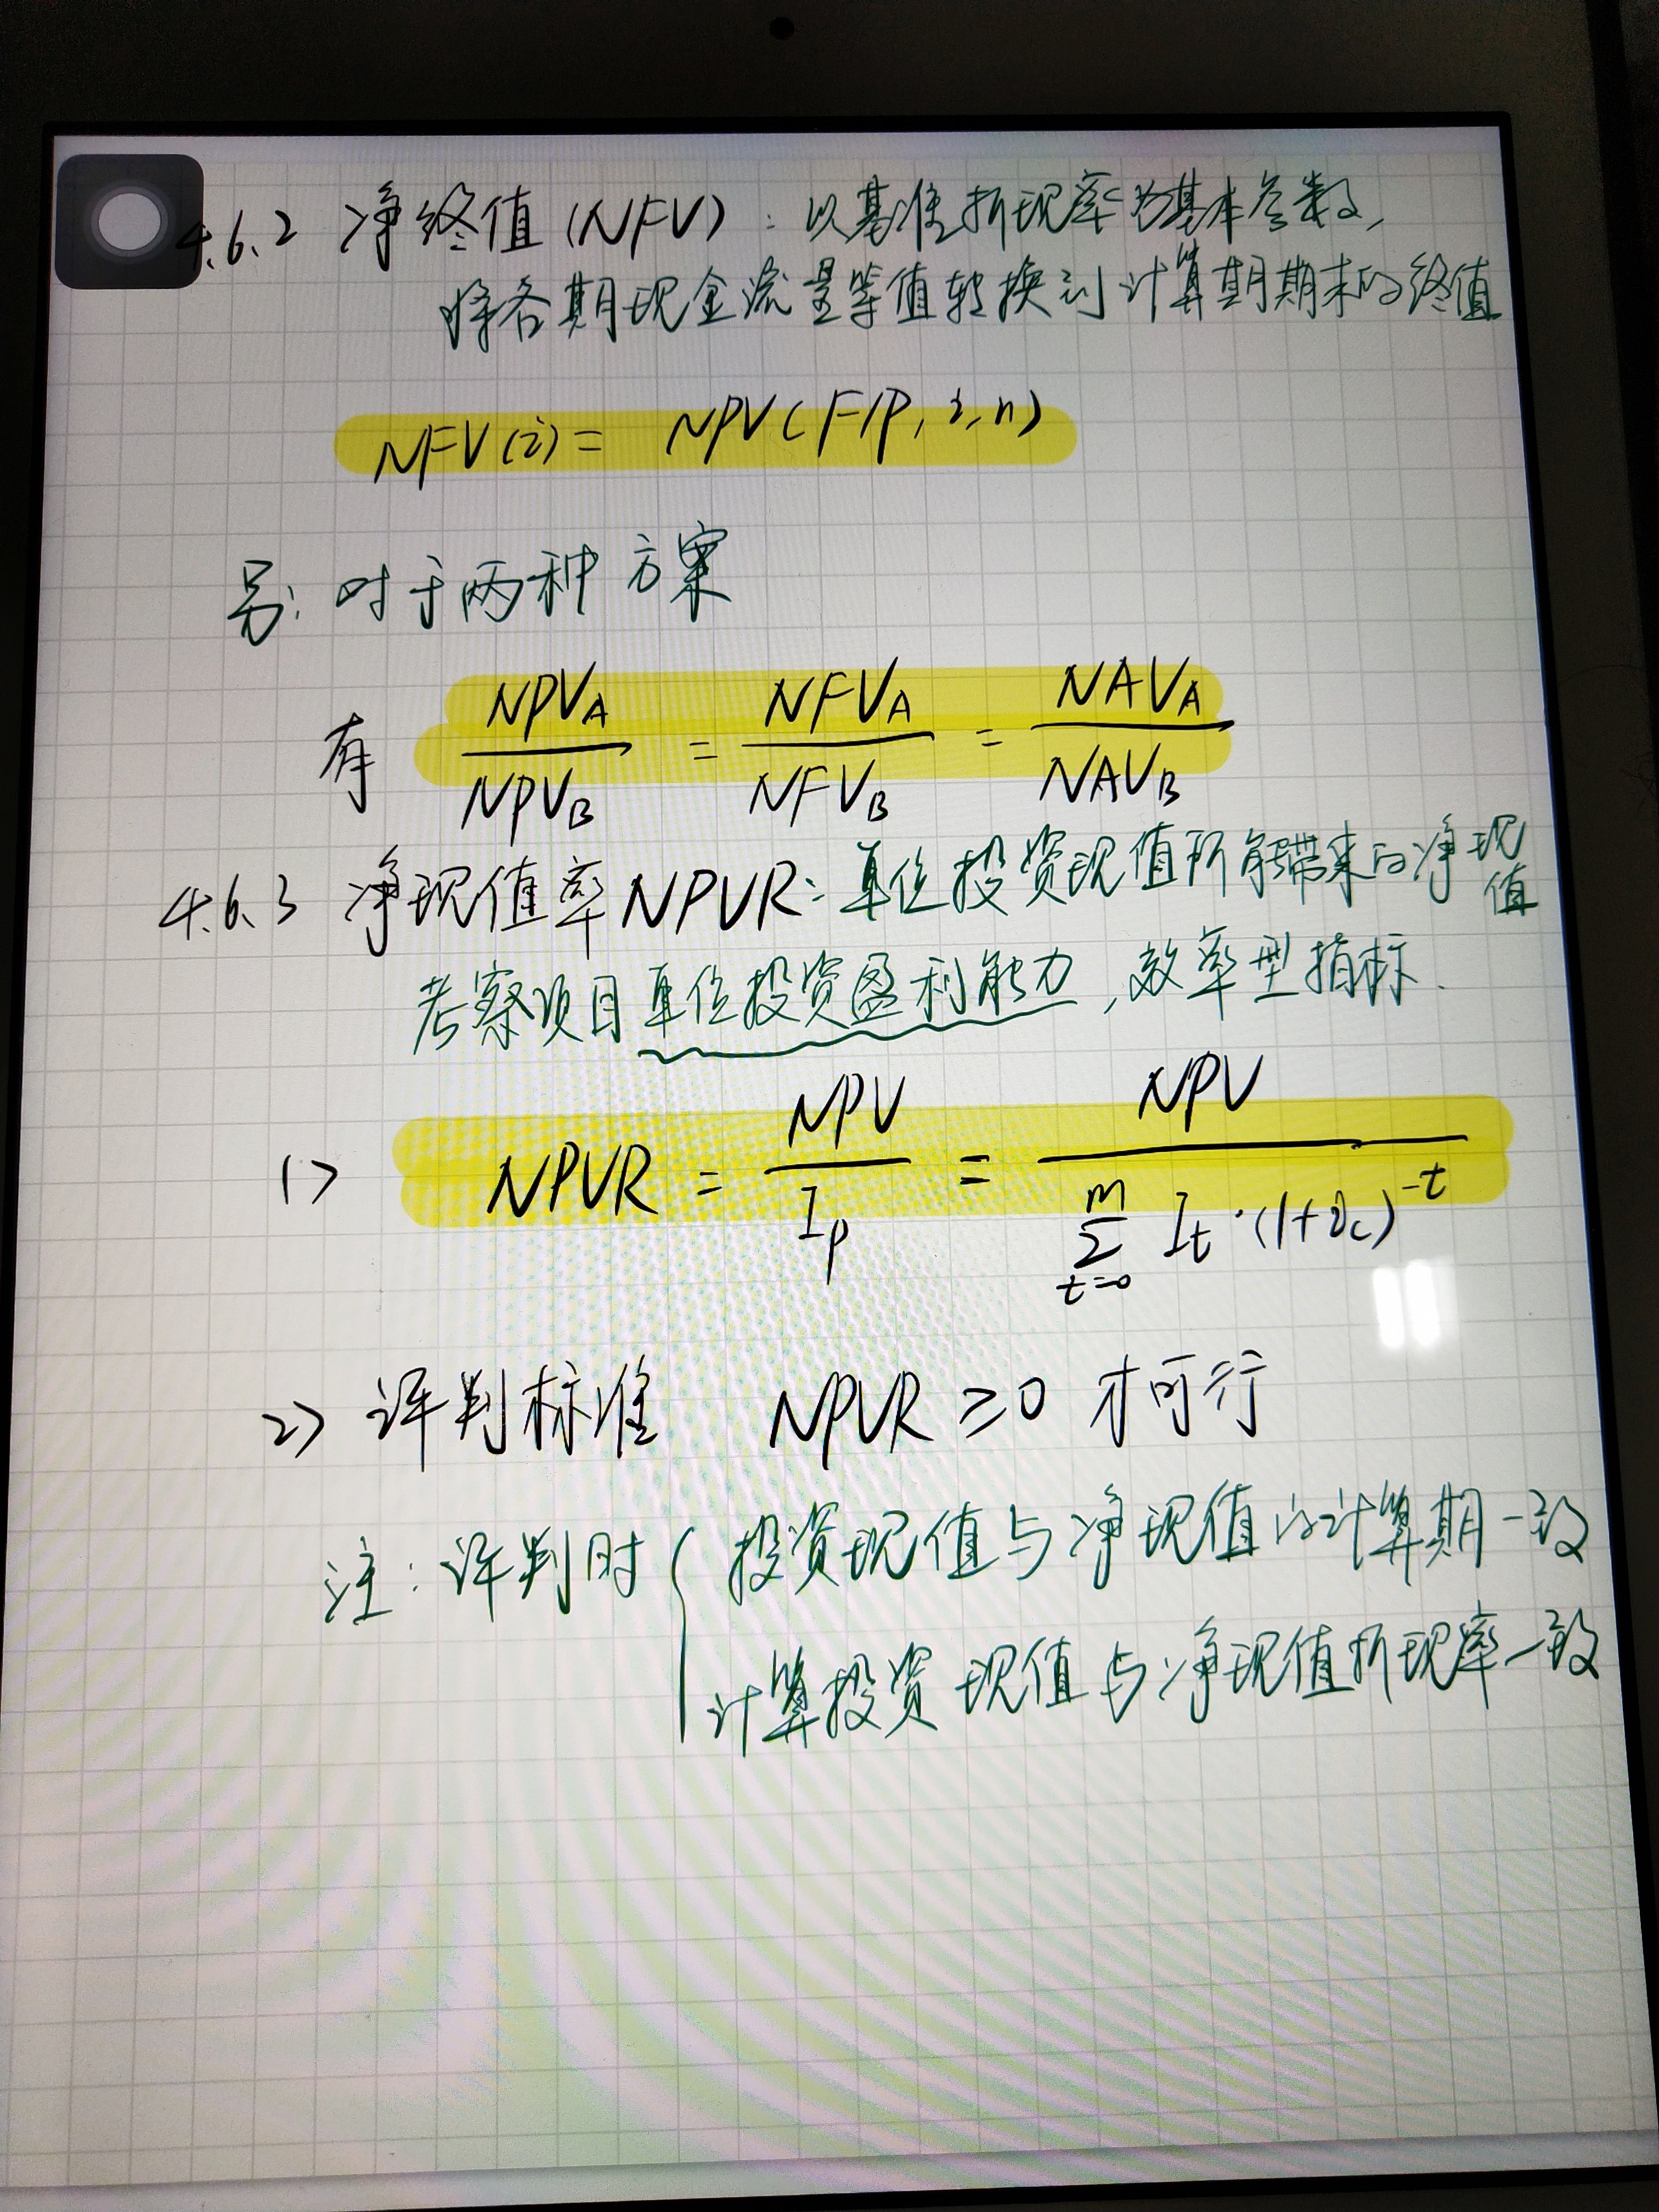 4.6.2 净终值(NFV):以基准折现率为基本参数,
将各期现金流量等值转换到计算期期末的终值
NFV(i)= NPV(F/P,i,n)
另:对于两种方案
有 NPVA/NPVB = NFVA/NFVB = NAVA/NAVB
4.6.3 净现值率NPVR:单位投资现值所能带来的净现值
考察项目单位投资盈利能力,效率型指标.
1> NPVR = NPV/Ip = NPV/∑(t=0→m) It·(1+ic)^-t
2> 评判标准 NPVR≥0 才可行
注:评判时{投资现值与净现值的计算期一致
计算投资现值与净现值折现率一致